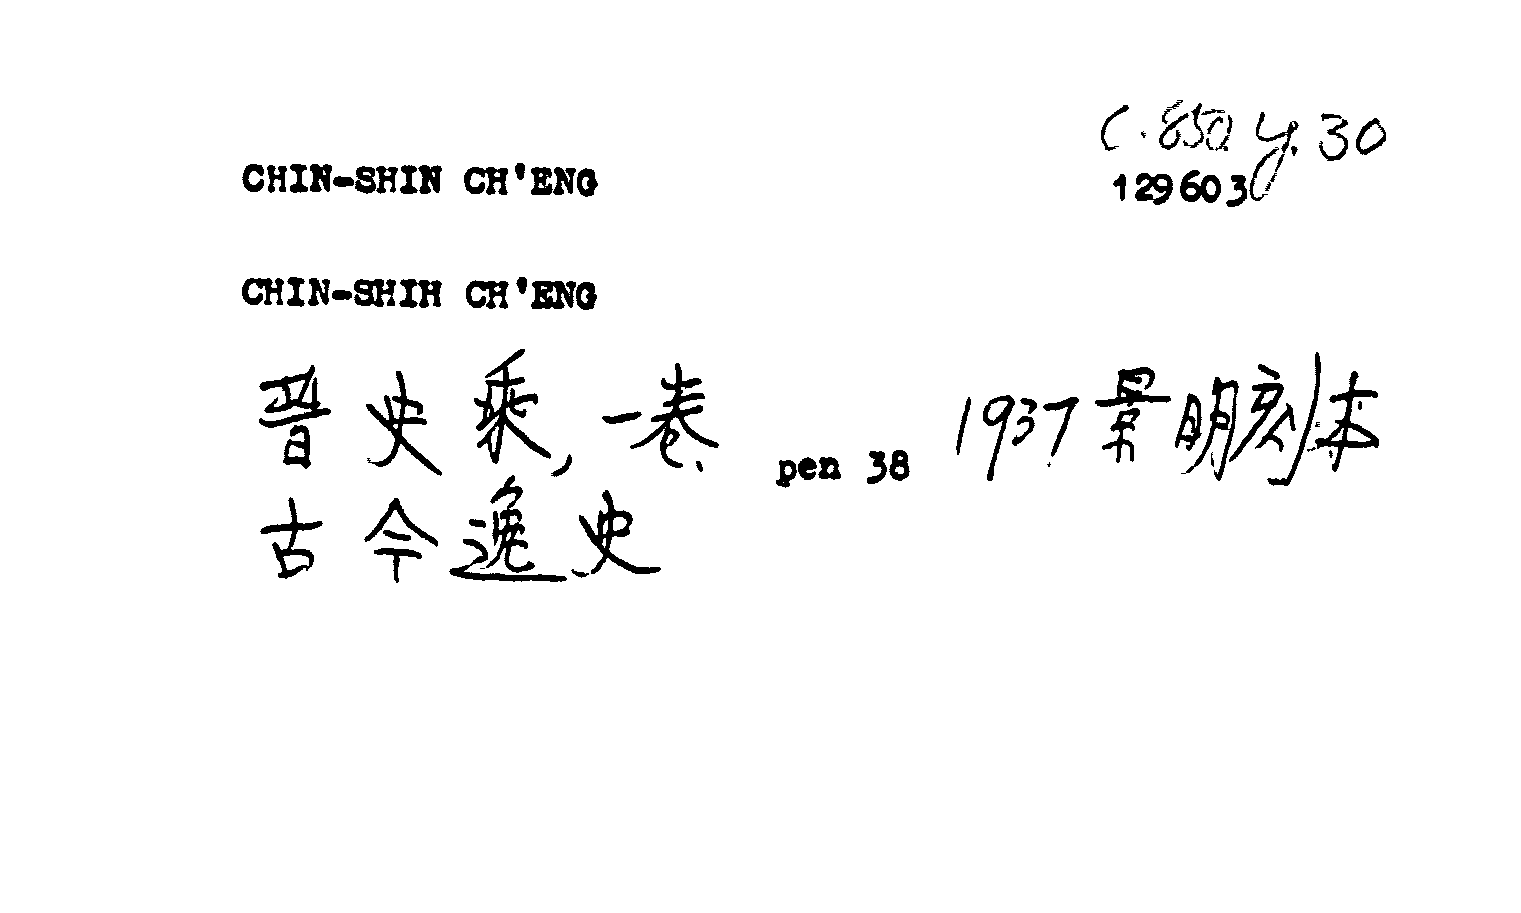 C.850 y. 30
CHIN-SHIN CH'ENG
129603
CHIN-SHIH CH'ENG
晋史乘, 一卷. pen 38 1937 景明刻本
古今逸史